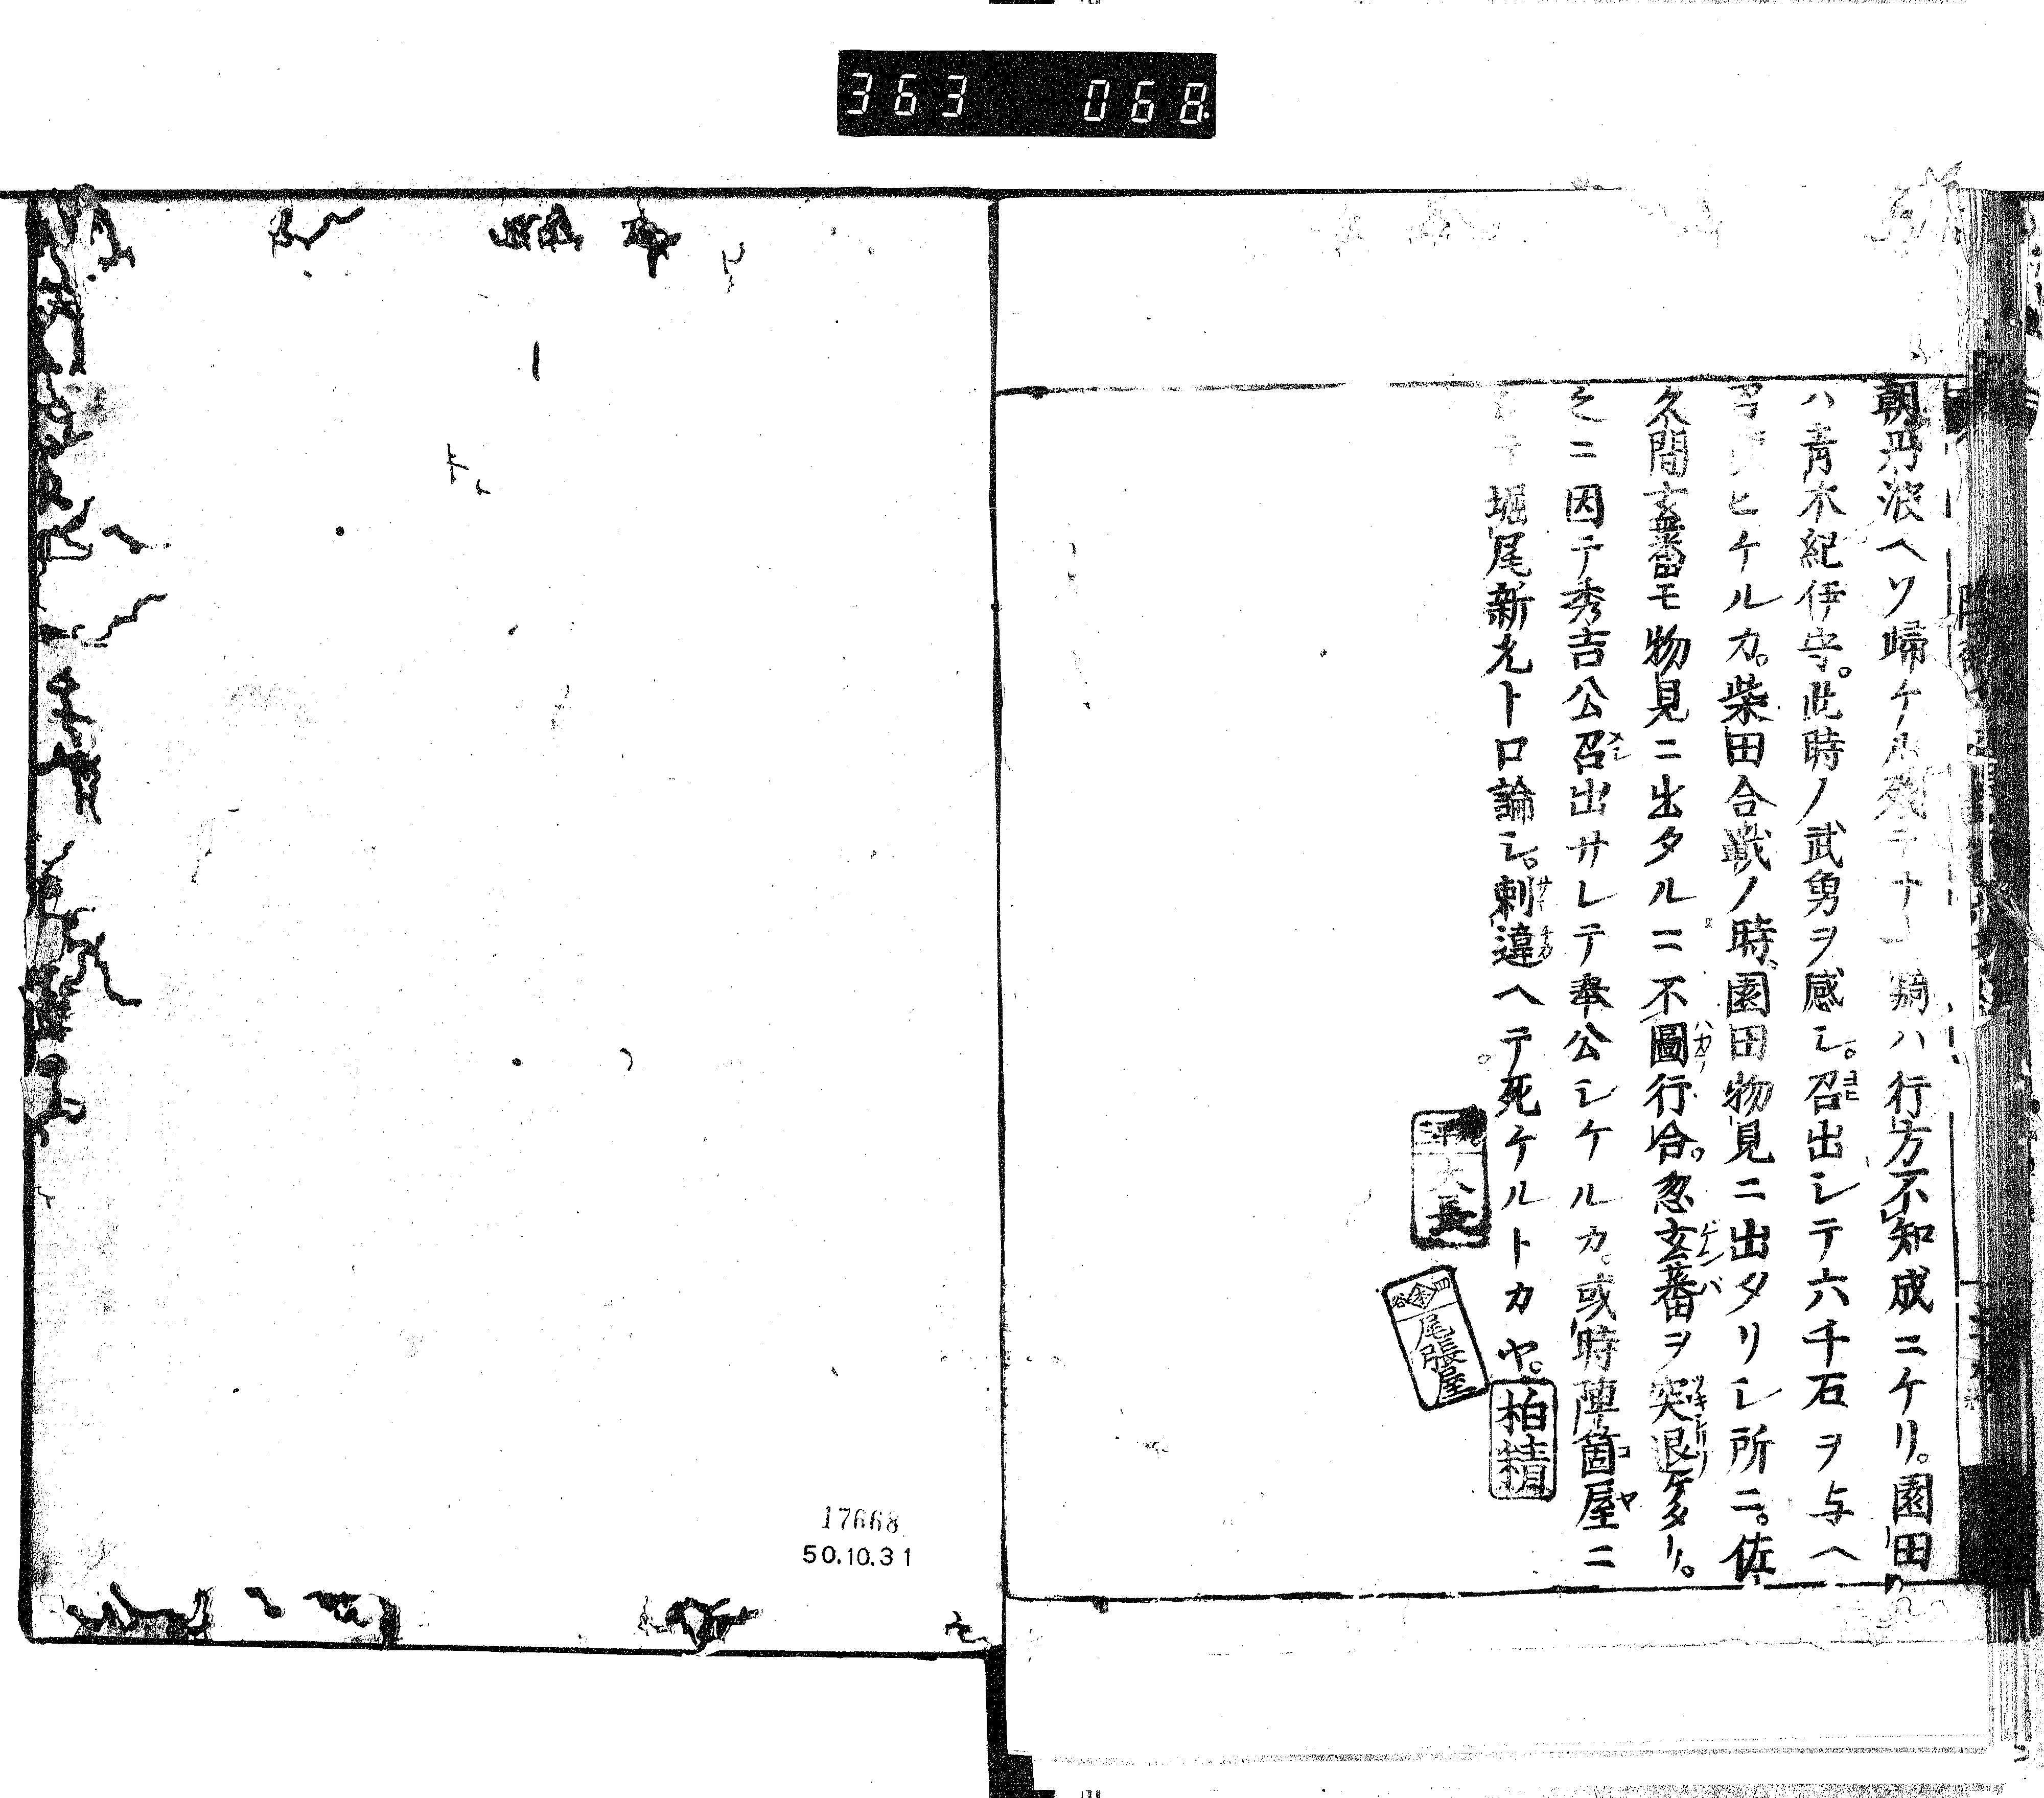 363 068
朝丹波ヘソ歸ケル殘テナ一騎ハ行方不知成ニケリ。園田
ハ青木紀伊守。此時ノ武勇ヲ感シ。召出シテ六千石ヲ与ヘ
ヒケルカ。柴田合戰ノ時。園田物見ニ出タリシ所ニ。佐
久間玄蕃モ物見ニ出タルニ不圖行合。忽玄蕃ヲ突退ケタリ。
之ニ因テ秀吉公召出サレテ奉公シケルカ。或時陣箇屋ニ
テ堀尾新九ト口論シ。刺違ヘテ死ケルトカヤ。
大長
四谷
尾張屋
柏精
17668
50.10.31